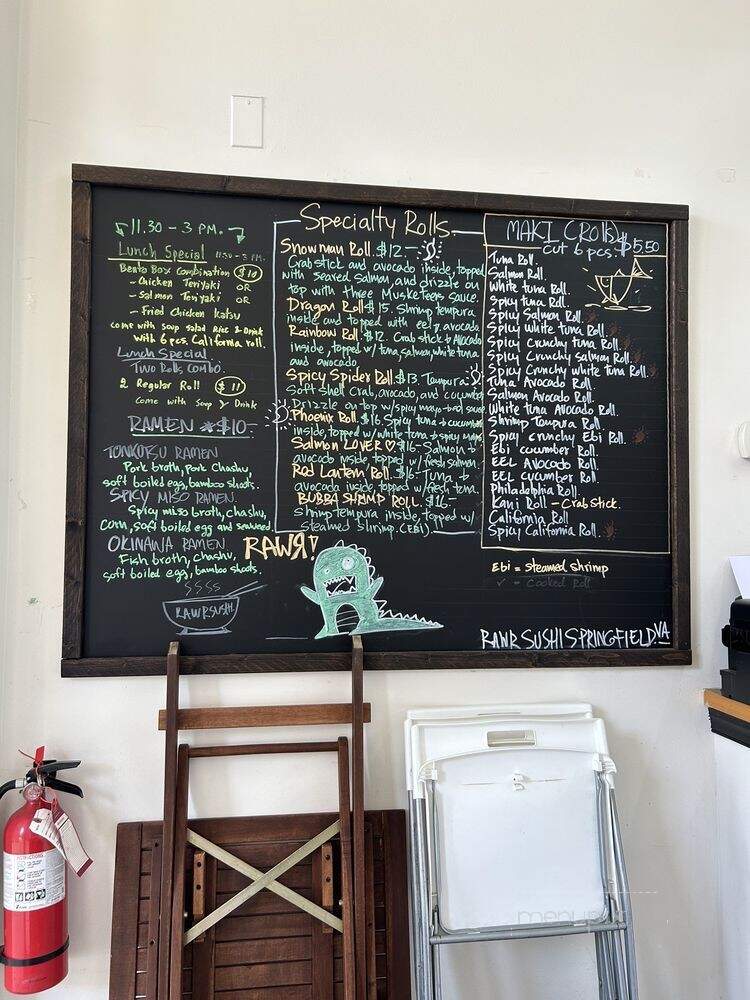 11.30 - 3 PM.
Lunch Special 11:30 - 3 PM.
Bento Box Combination $10
- Chicken Teriyaki OR
- Salmon Teriyaki OR
- Fried Chicken Katsu
come with soup salad Rice & Drink
with 6 pcs. California roll.
Lunch Special
Two Rolls combo.
2 Regular Roll $11
come with Soup & Drink
RAMEN $10-
TONKOTSU RAMEN
Pork broth, pork Chashu,
soft boiled egg, bamboo shoots.
SPICY MISO RAMEN.
Spicy miso broth, chashu,
corn, soft boiled egg and seaweed
OKINAWA RAMEN
Fish broth, chashu,
soft boiled egg, bamboo shoots.
RAWRSUSHI
Specialty Rolls
Snowman Roll $12.-
Crab stick and avocado inside, topped
with seared salmon, and drizzle on
top with three Musketeers sauce.
Dragon Roll $15. Shrimp tempura
inside and topped with eel, avocado.
Rainbow Roll. $12. Crab stick & Avocado
inside, topped w/ tuna, salmon, white tuna
and avocado
Spicy Spider Roll. $13. Tempura
Soft shell crab, avocado, and cucumber
Drizzle on top w/ spicy mayo
Phoenix Roll. $16. Spicy tuna & cucumber
inside, topped w/ white tuna & spicy mayo
Salmon LOVER $16- Salmon &
avocado inside topped w/ fresh salmon.
Red Lantern Roll. $16- Tuna &
avocado inside, topped w/ fresh tuna.
BUBBA SHRIMP ROLL. $16-
shrimp tempura inside, topped w/
steamed shrimp. (EBI).
RAWR!
MAKI (Rolls)
Cut 6 pcs. $5.50
Tuna Roll.
Salmon Roll.
White tuna Roll.
Spicy tuna Roll.
Spicy Salmon Roll.
Spicy white tuna Roll.
Spicy Crunchy tuna Roll.
Spicy Crunchy salmon Roll.
Spicy Crunchy white tuna Roll.
Tuna Avocado Roll.
Salmon Avocado Roll.
White tuna Avocado Roll.
Shrimp Tempura Roll
Spicy crunchy Ebi Roll.
Ebi cucumber Roll.
EEL Avocado Roll.
EEL cucumber Roll.
Philadelphia Roll.
Kani Roll - Crab Stick.
California Roll
Spicy California Roll.
Ebi = steamed shrimp
✓ = Cooked Roll
RAWR SUSHI SPRINGFIELD.VA
INSTRUCTIONS